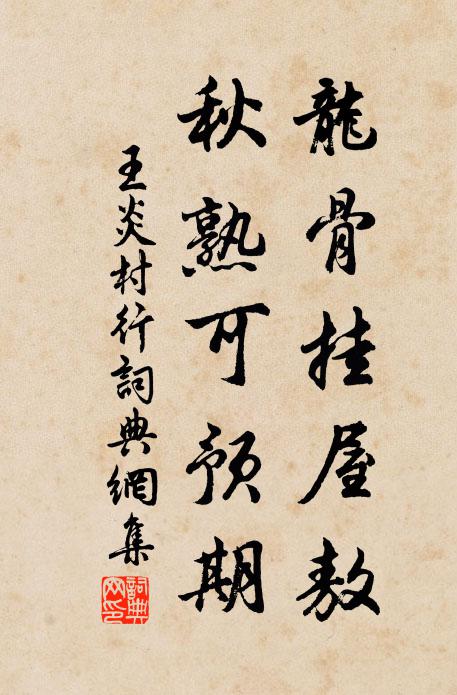 龍骨挂屋敖
秋熟可預期
王炎村行詞典網集
詞典網印